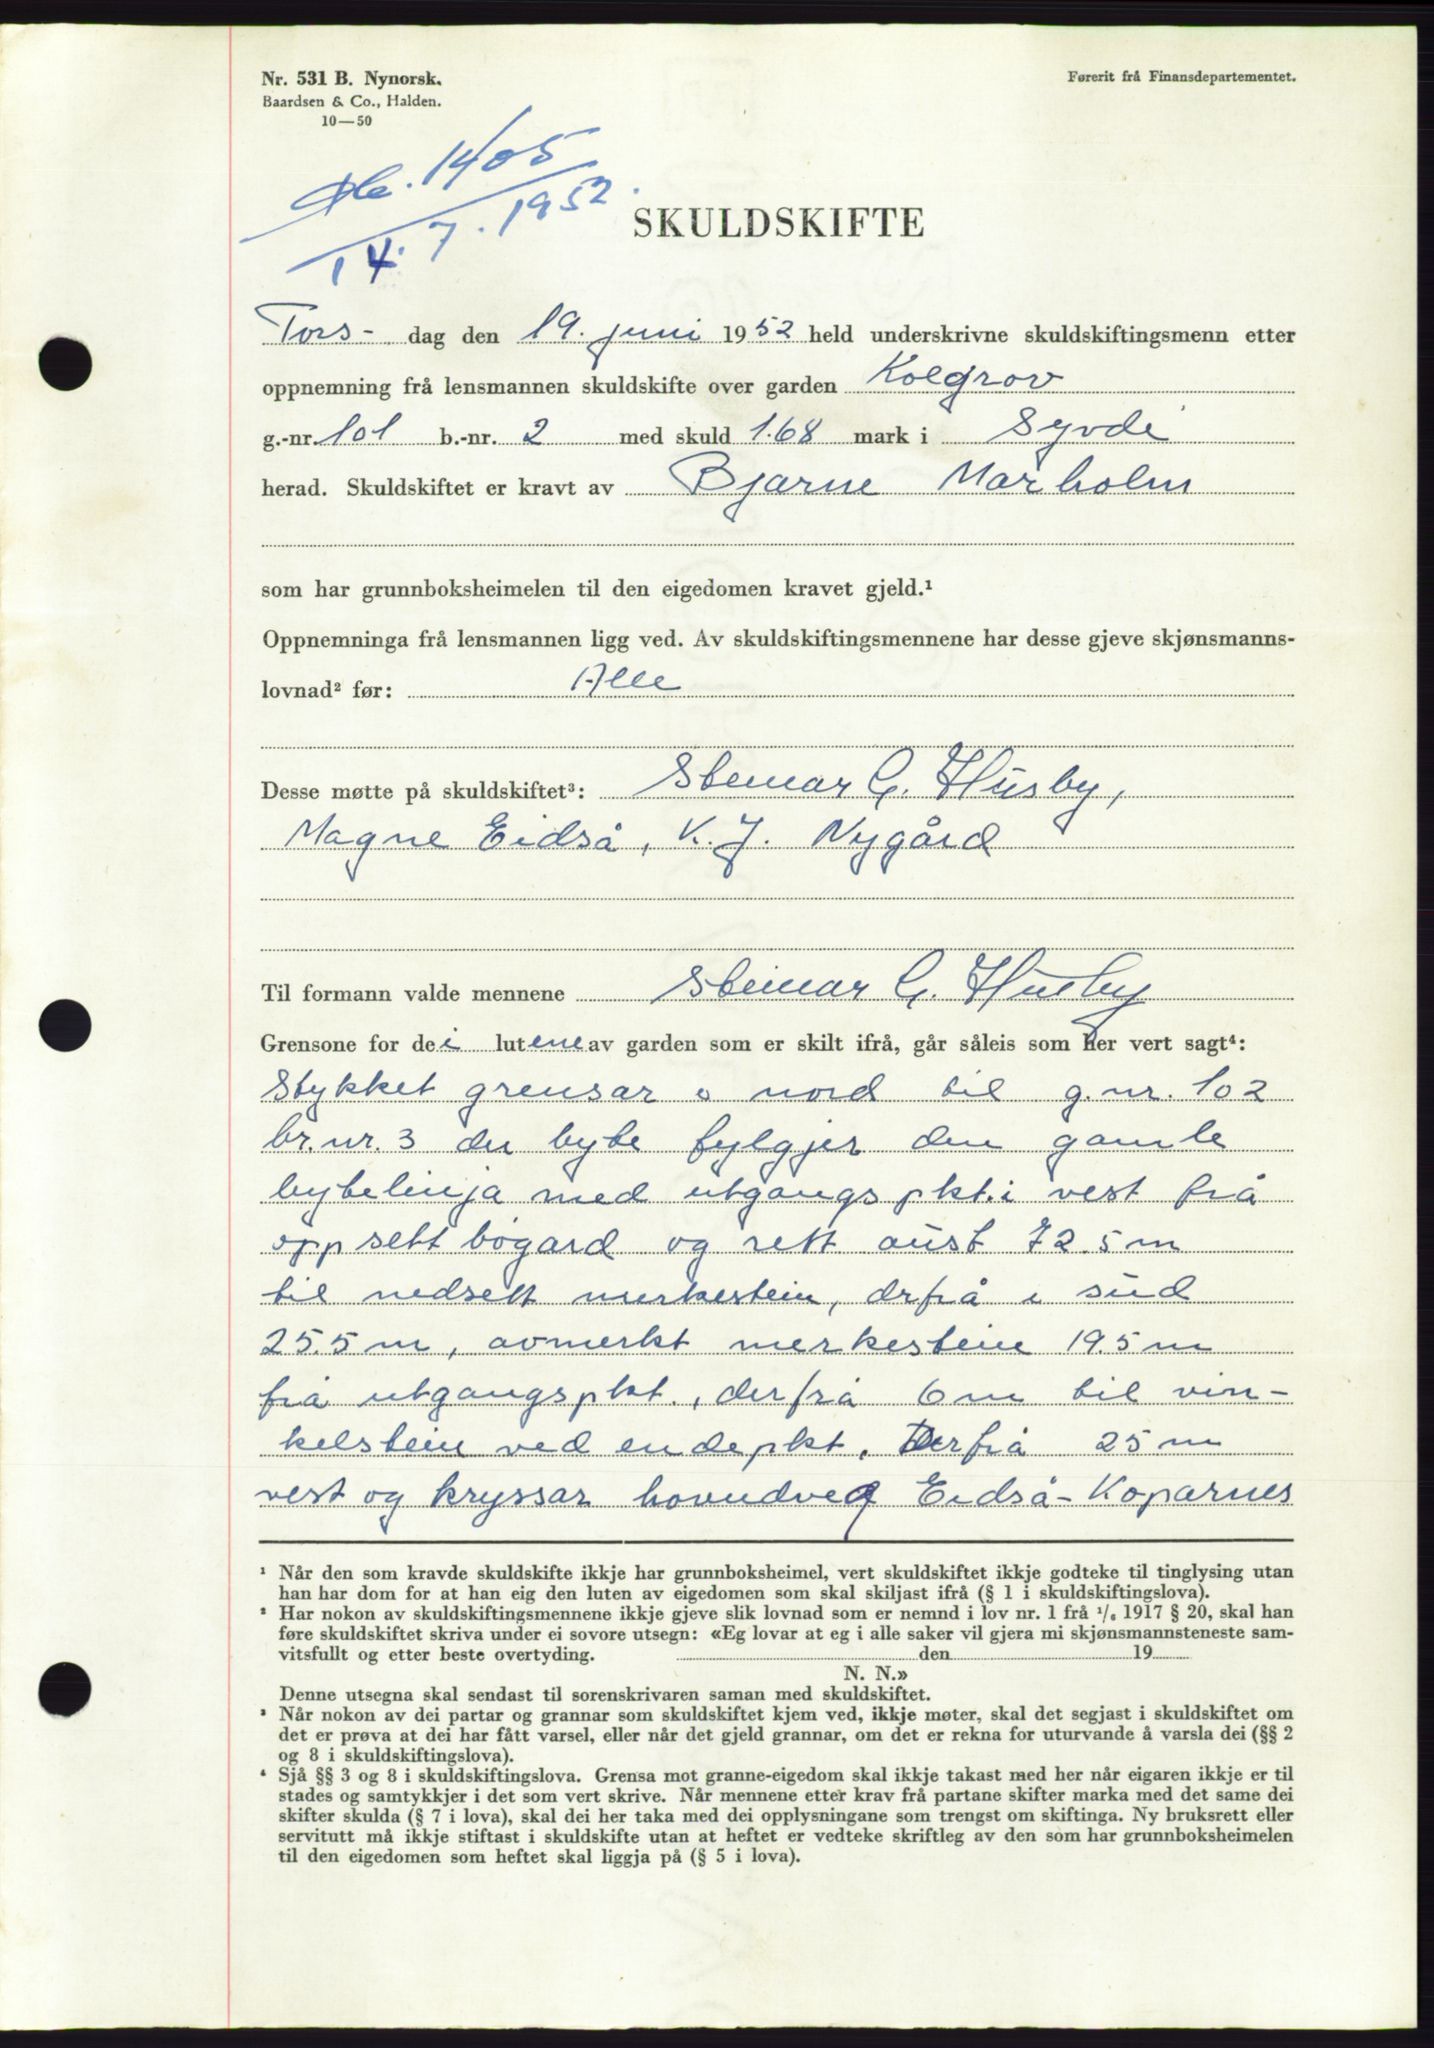 Nr. 531 B. Nynorsk.
Baardsen & Co., Halden.
10—50
Førerit frå Finansdepartementet.
1405
14.7.1952.
SKULDSKIFTE
Tors- dag den 19. juni 1952 held underskrivne skuldskiftingsmenn etter
oppnemning frå lensmannen skuldskifte over garden Kolgrov
g.-nr. 101 b.-nr. 2 med skuld 1.68 mark i Syvde
herad. Skuldskiftet er kravt av Bjarne Marholm
som har grunnboksheimelen til den eigedomen kravet gjeld.¹
Oppnemninga frå lensmannen ligg ved. Av skuldskiftingsmennene har desse gjeve skjønsmanns-
lovnad² før: Alle
Desse møtte på skuldskiftet³: Steinar G. Husby,
Magne Eidså, K. J. Nygård
Til formann valde mennene Steinar G. Husby
Grensone for dei lutene av garden som er skilt ifrå, går såleis som her vert sagt⁴:
Stykket grensar i nord til g.nr. 102
br.nr. 3 der byte fylgjer den gamle
bytelinja med utgangspkt. i vest frå
oppsett bøgard og rett aust 72.5 m
til nedsett merkestein, derfrå i sud
25.5 m, avmerkt merkestein 19.5 m
frå utgangspkt., derfrå 6 m til vin-
kelstein ved endepkt. Derfrå 25 m
vest og kryssar hovudveg Eidså-Koparnes
¹ Når den som kravde skuldskifte ikkje har grunnboksheimel, vert skuldskiftet ikkje godteke til tinglysing utan
han har dom for at han eig den luten av eigedomen som skal skiljast ifrå (§ 1 i skuldskiftingslova).
² Har nokon av skuldskiftingsmennene ikkje gjeve slik lovnad som er nemnd i lov nr. 1 frå ¹/₆ 1917 § 20, skal han
føre skuldskiftet skriva under ei sovore utsegn: «Eg lovar at eg i alle saker vil gjera mi skjønsmannsteneste sam-
vitsfullt og etter beste overtyding. den 19
N. N.»
Denne utsegna skal sendast til sorenskrivaren saman med skuldskiftet.
³ Når nokon av dei partar og grannar som skuldskiftet kjem ved, ikkje møter, skal det segjast i skuldskiftet om
det er prøva at dei har fått varsel, eller når det gjeld grannar, om det er rekna for uturvande å varsla dei (§§ 2
og 8 i skuldskiftingslova).
⁴ Sjå §§ 3 og 8 i skuldskiftingslova. Grensa mot granne-eigedom skal ikkje takast med her når eigaren ikkje er til
stades og samtykkjer i det som vert skrive. Når mennene etter krav frå partane skifter marka med det same dei
skifter skulda (§ 7 i lova), skal dei her taka med dei opplysningane som trengst om skiftinga. Ny bruksrett eller
servitutt må ikkje stiftast i skuldskifte utan at heftet er vedteke skriftleg av den som har grunnboksheimelen
til den eigedomen som heftet skal liggja på (§ 5 i lova).